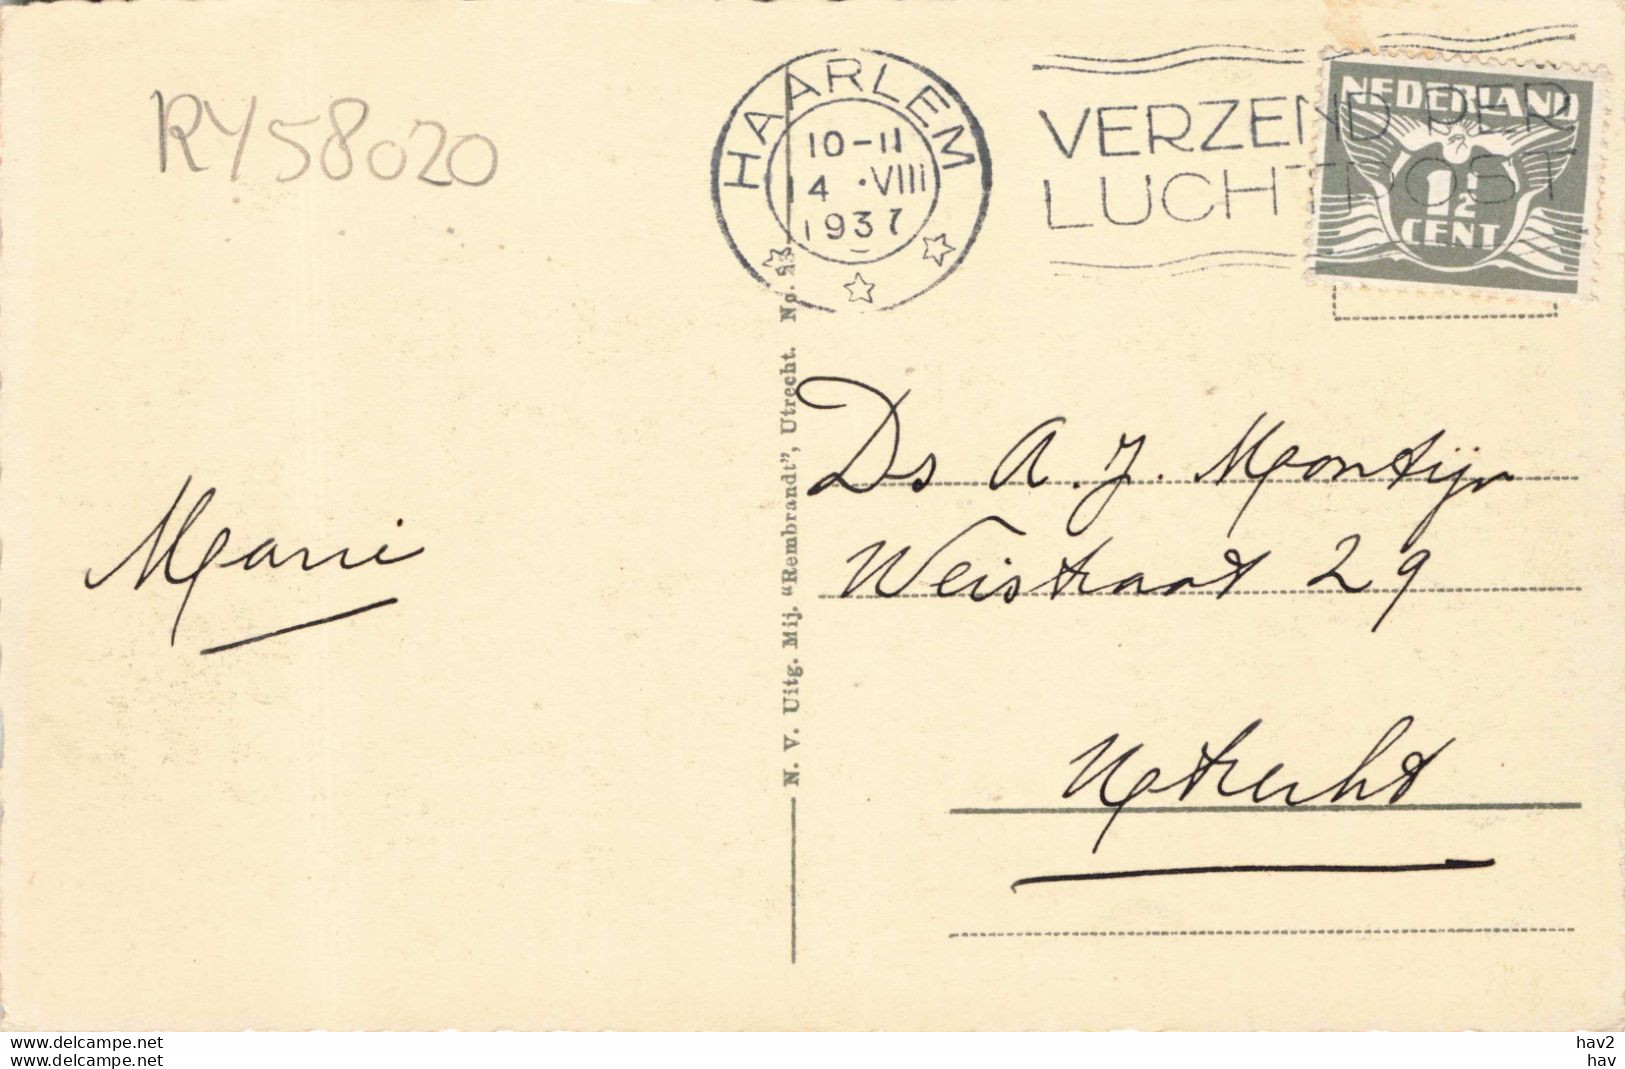 RY58020
HAARLEM
10-11
14 .VIII
1937
VERZEND PER
LUCHTPOST
NEDERLAND
1½
CENT
N. V. Uitg. Mij. "Rembrandt", Utrecht. No.
Ds A. J. Montijn
Weistraat 29
Utrecht
Marie
www.delcampe.net
www.delcampe.net
hav2
hav